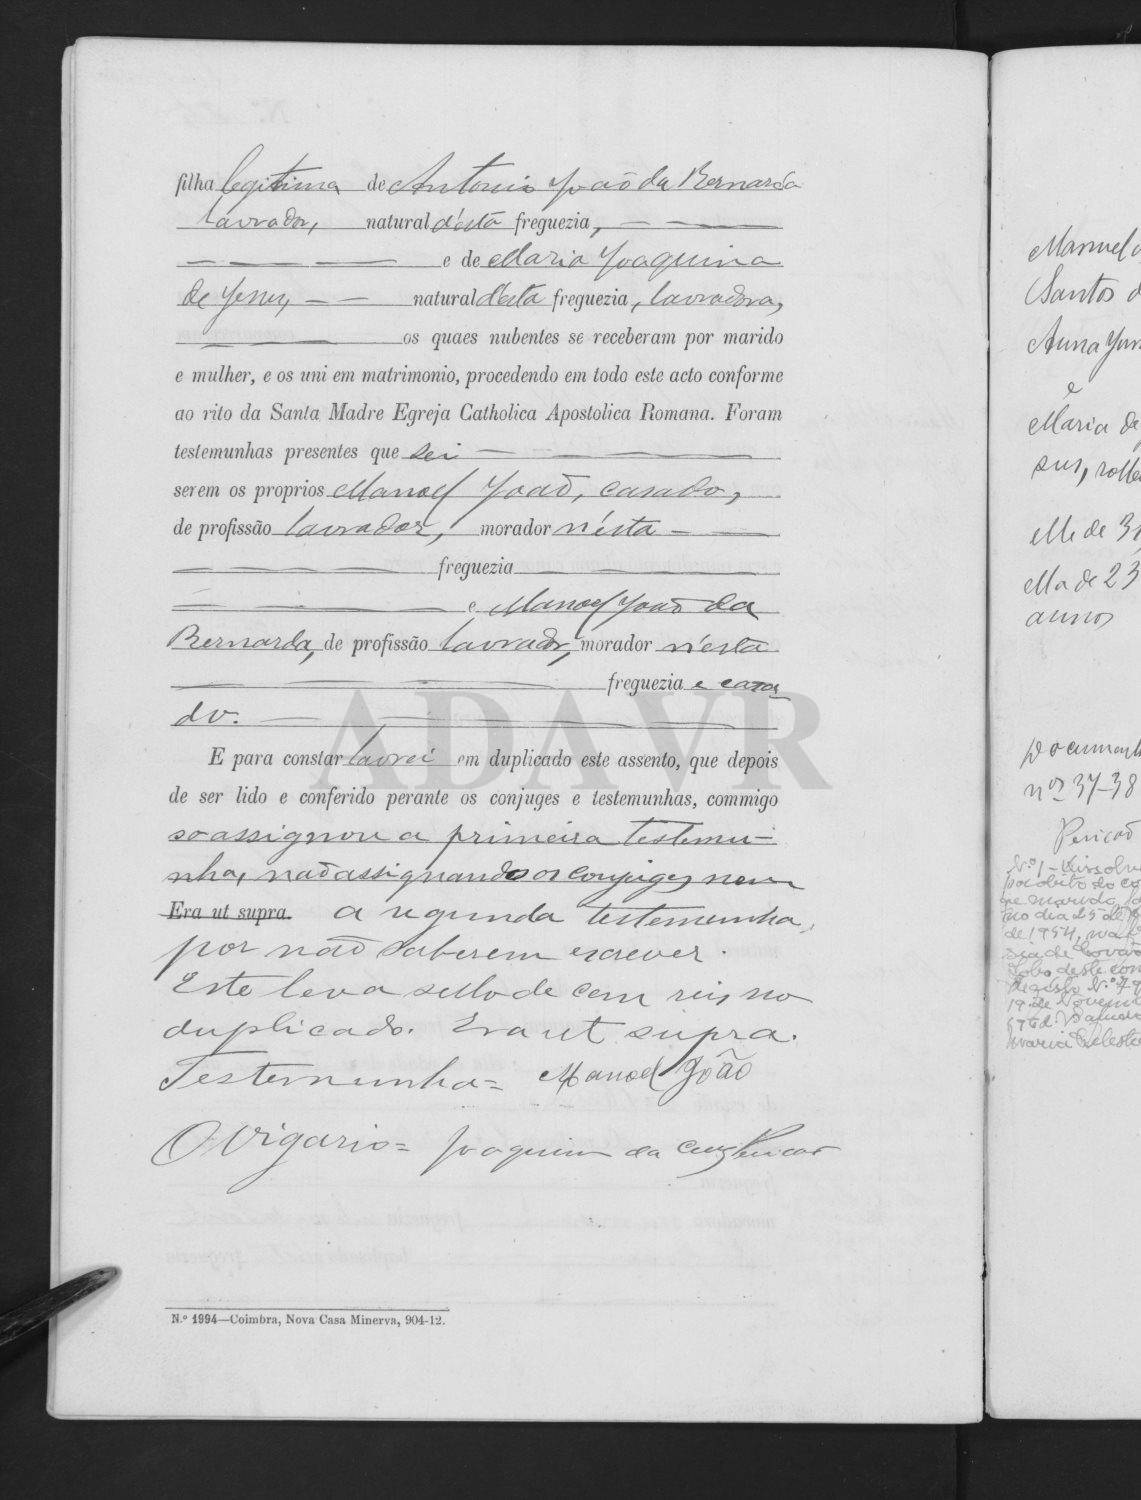 filha legitima de Antonio João da Bernarda
lavrador, natural d'ésta freguezia,
e de Maria Joaquina
de Jesus, natural d'ésta freguezia, lavradora,
os quaes nubentes se receberam por marido
e mulher, e os uni em matrimonio, procedendo em todo este acto conforme
ao rito da Santa Madre Egreja Catholica Apostolica Romana. Foram
testemunhas presentes que sei
serem os proprios Manoel João, casado,
de profissão lavrador, morador n'ésta
freguezia
e Manoel João da
Bernarda, de profissão lavrador, morador n'ésta
freguezia e casa
do.
ADAVR
E para constar lavrei em duplicado este assento, que depois
de ser lido e conferido perante os conjuges e testemunhas, commigo
só assignou a primeira testemu-
nha, não assignando os conjuges nem
Era ut supra. a segunda testemunha,
por não saberem escrever.
Este leva sello de cem reis no
duplicado. Era ut supra.
Testemunha= Manoel João
O Vigario= Joaquim da Cruz Pericão
N.º 1994—Coimbra, Nova Casa Minerva, 904-12.
Manuel
Santos d
Anna
e
Maria de
sus, solte
Elle de 31
Ella de 23
annos
Document
nos 37-38
Pericão
N.º 1 - Dissolvi
por óbito do co
ge marido,
no dia 25 de
de 1954, na
sia de Covão
Lobo deste con
Registo N.º 79
19 de Novem
1954.
Maria Celeste